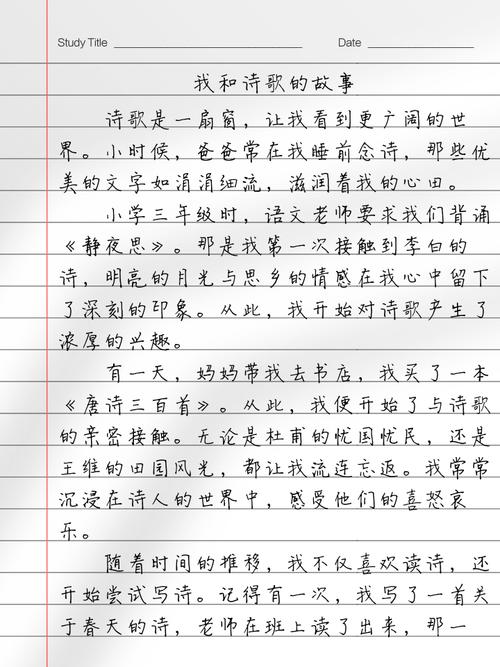 Study Title Date
我和诗歌的故事
诗歌是一扇窗，让我看到更广阔的世
界。小时候，爸爸常在我睡前念诗，那些优
美的文字如涓涓细流，滋润着我的心田。
小学三年级时，语文老师要求我们背诵
《静夜思》。那是我第一次接触到李白的
诗，明亮的月光与思乡的情感在我心中留下
了深刻的印象。从此，我开始对诗歌产生了
浓厚的兴趣。
有一天，妈妈带我去书店，我买了一本
《唐诗三百首》。从此，我便开始了与诗歌
的亲密接触。无论是杜甫的忧国忧民，还是
王维的田园风光，都让我流连忘返。我常常
沉浸在诗人的世界中，感受他们的喜怒哀
乐。
随着时间的推移，我不仅喜欢读诗，还
开始尝试写诗。记得有一次，我写了一首关
于春天的诗，老师在班上读了出来，那一